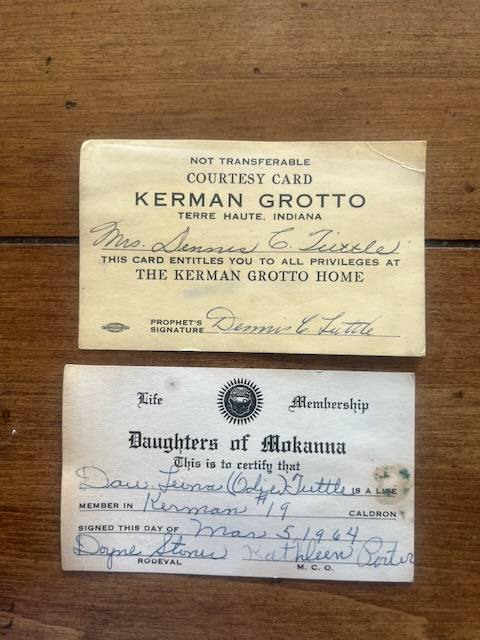 NOT TRANSFERABLE
COURTESY CARD
KERMAN GROTTO
TERRE HAUTE, INDIANA
Mrs. Dennis C. Tuttle
THIS CARD ENTITLES YOU TO ALL PRIVILEGES AT
THE KERMAN GROTTO HOME
PROPHET'S
SIGNATURE Dennis C. Tuttle
Life Membership
Daughters of Mokanna
This is to certify that
Dau. (Odie) Tuttle IS A LIFE
MEMBER IN Kerman #19 CALDRON
SIGNED THIS DAY OF Mar 5, 1964
Doyne Stoner Kathleen Porter
RODEVAL M. C. O.